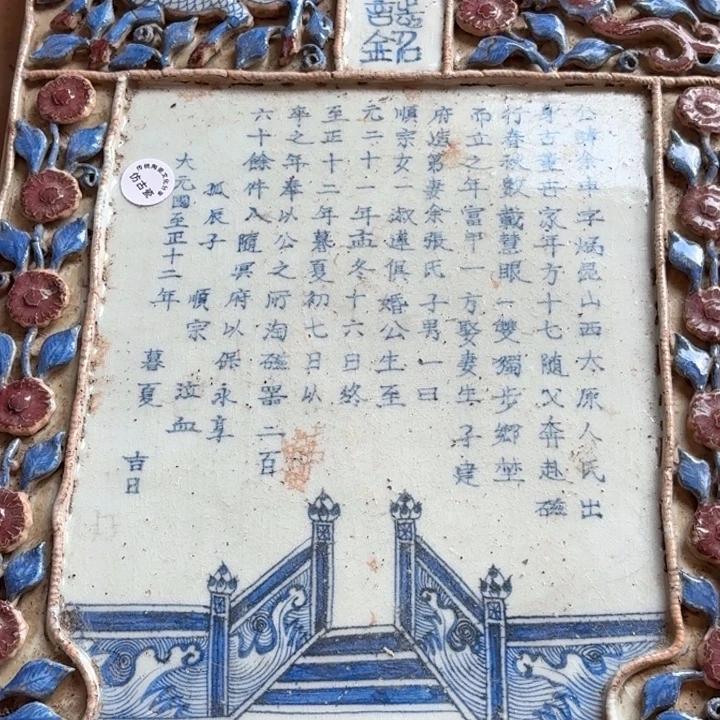 誌銘
公諱金車字煬崑山西太原人氏出
身古董世家年方十七随父奔赴磁
行春秋數載慧眼一雙獨步鄉堃
而立之年富甲一方娶妻生子建
府造第妻余張氏子男一曰
順宗女淑蓮俱婚公生至
元二十一年孟冬十六日終
至正十二年暮夏初七日以
卒之年奉以公之所淘磁器二百
六十餘件入隨冥府以保永享
孤辰子 順宗 泣血
大元國至正十二年 暮夏 吉日
仿古瓷